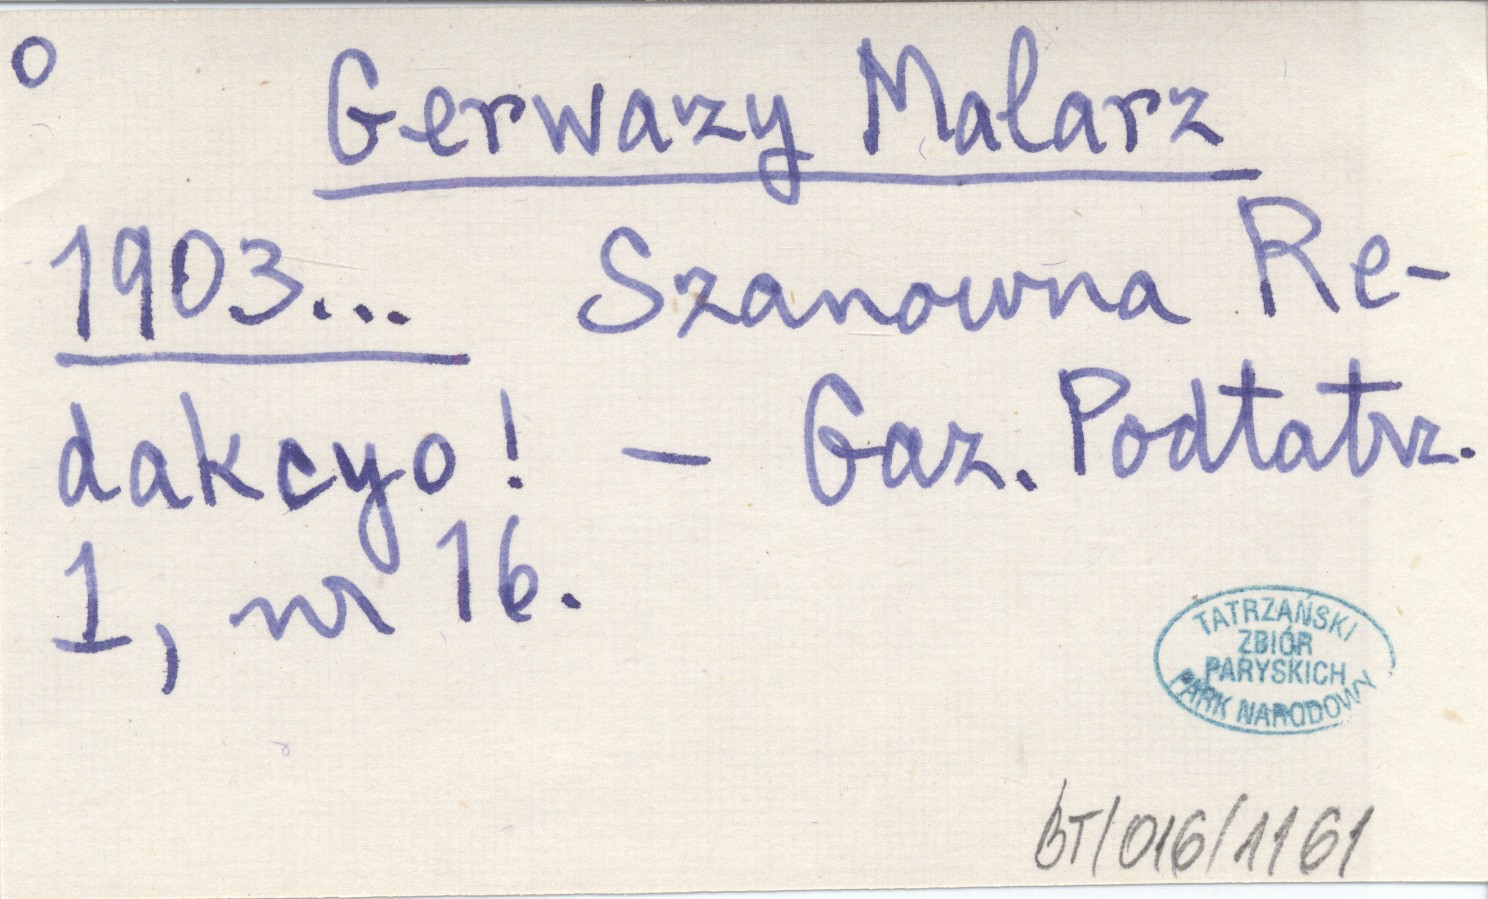 o Gerwazy Malarz
1903... Szanowna Re-
dakcyo! – Gaz. Podtatrz.
1, nr 16.
TATRZAŃSKI
ZBIÓR
PARYSKICH
PARK NARODOWY
bT/016/1161